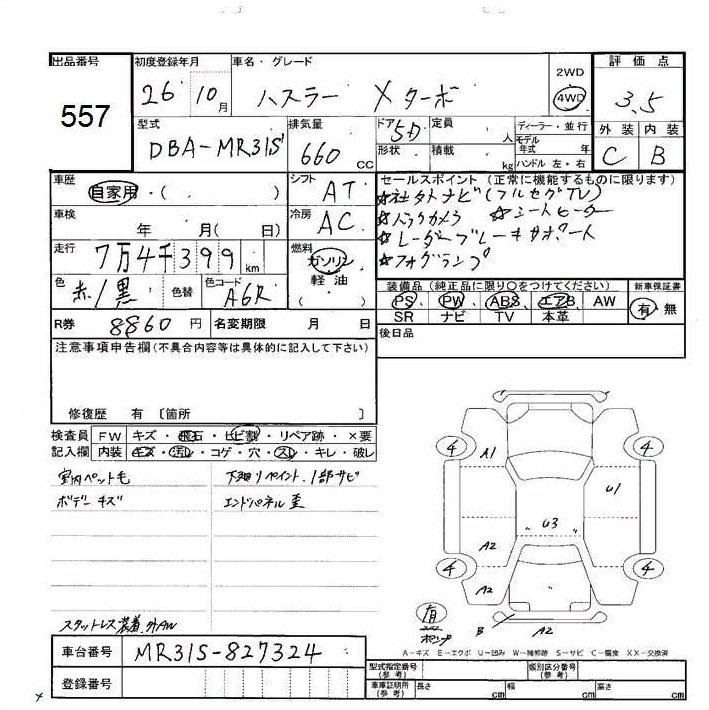 出品番号 初度登録年月 車名・グレード 2WD 評価点
557 26 10月 ハスラー Xターボ 4WD 3.5
型式 排気量 ドア 5D 定員 人 ディーラー・並行 外装 内装
DBA-MR31S 660 CC 形状 積載 kg モデル年式 年 ハンドル 左・右 C B
車歴 自家用・( ) シフト AT セールスポイント (正常に機能するものに限ります)
☆社外ナビ(フルセグTV)
車検 年 月( 日) 冷房 AC ☆バックカメラ ☆シートヒーター
走行 7万4千399km 燃料 ガソリン ☆レーダーブレーキサポート
軽油 ☆フォグランプ
( )
色 赤/黒 色替 色コード A6R 装備品 (純正品に限り○をつけてください) 新車保証書
PS PW ABS エアB AW 有・無
R券 8860円 名変期限 月 日 SR ナビ TV 本革
注意事項申告欄(不具合内容等は具体的に記入して下さい) 後日品
修復歴 有 〔箇所 〕
検査員 FW キズ・飛石・ヒビ割・リペア跡・×要
記入欄 内装 キズ・汚レ・コゲ・穴・スレ・キレ・破レ
室内ペット毛 下廻リペイント、1部サビ
ボデーキズ エンドパネル歪
4 A1 4
U1
U3
A2
4 A2 4
有 B A2
スタットレス装着、外AW
A−キズ E−エクボ U−凹み W−補修跡 S−サビ C−腐食 XX−交換済
車台番号 MR31S-827324
登録番号 型式指定番号(参考) 類別区分番号(参考)
車庫証明所(参考) 長さ cm 幅 cm 高さ cm